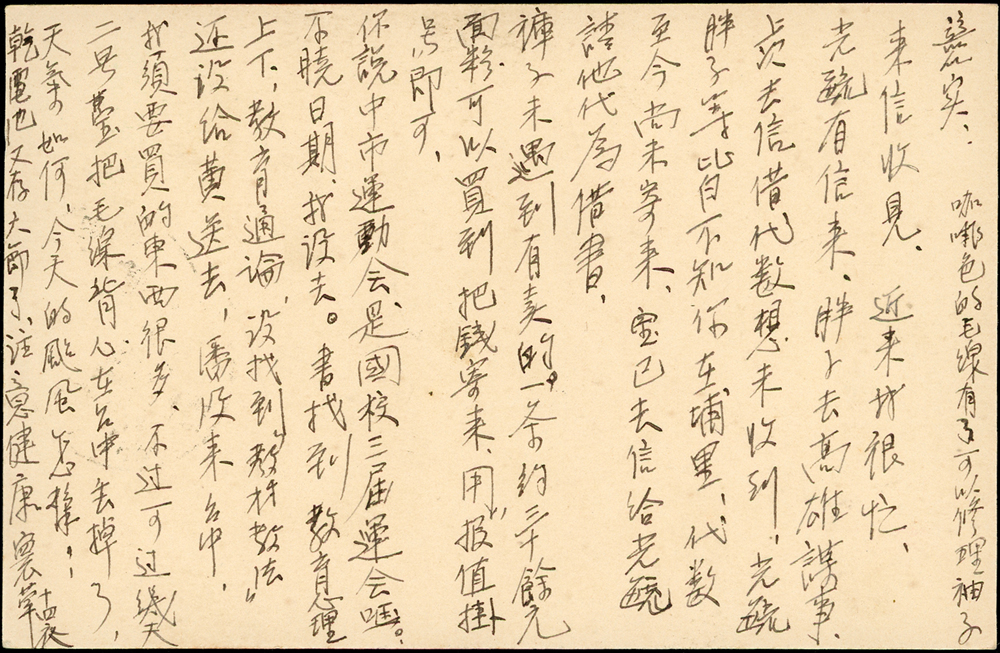 咖啡色的毛線有了可以修理袖子
來信收見、近来我很忙、
光疏有信来、胖子去高雄謀事、
上次去信借代数想未收到！光疏
胖子等皆不知你在埔里，代数
至今尚未寄来、寔已去信給光疏
請他代為借書，
褲子未遇到有卖的。一条約三十餘元
面粉可以買到把錢寄来、用报值掛
号即可，
你說中市運動会、是國校三届運会嗎。
不曉日期、我没去。書找到教育心理
上下，教育通論，没找到“教材教法”
还没给黄送去，潘没来台中，
我須要買的東西很多、不过可过幾天
二只蛋把毛線背心在台中丢掉了，
天氣如何，今天的颱風怎樣；
乾電池又存大節了、注意健康 寔草 十四夜